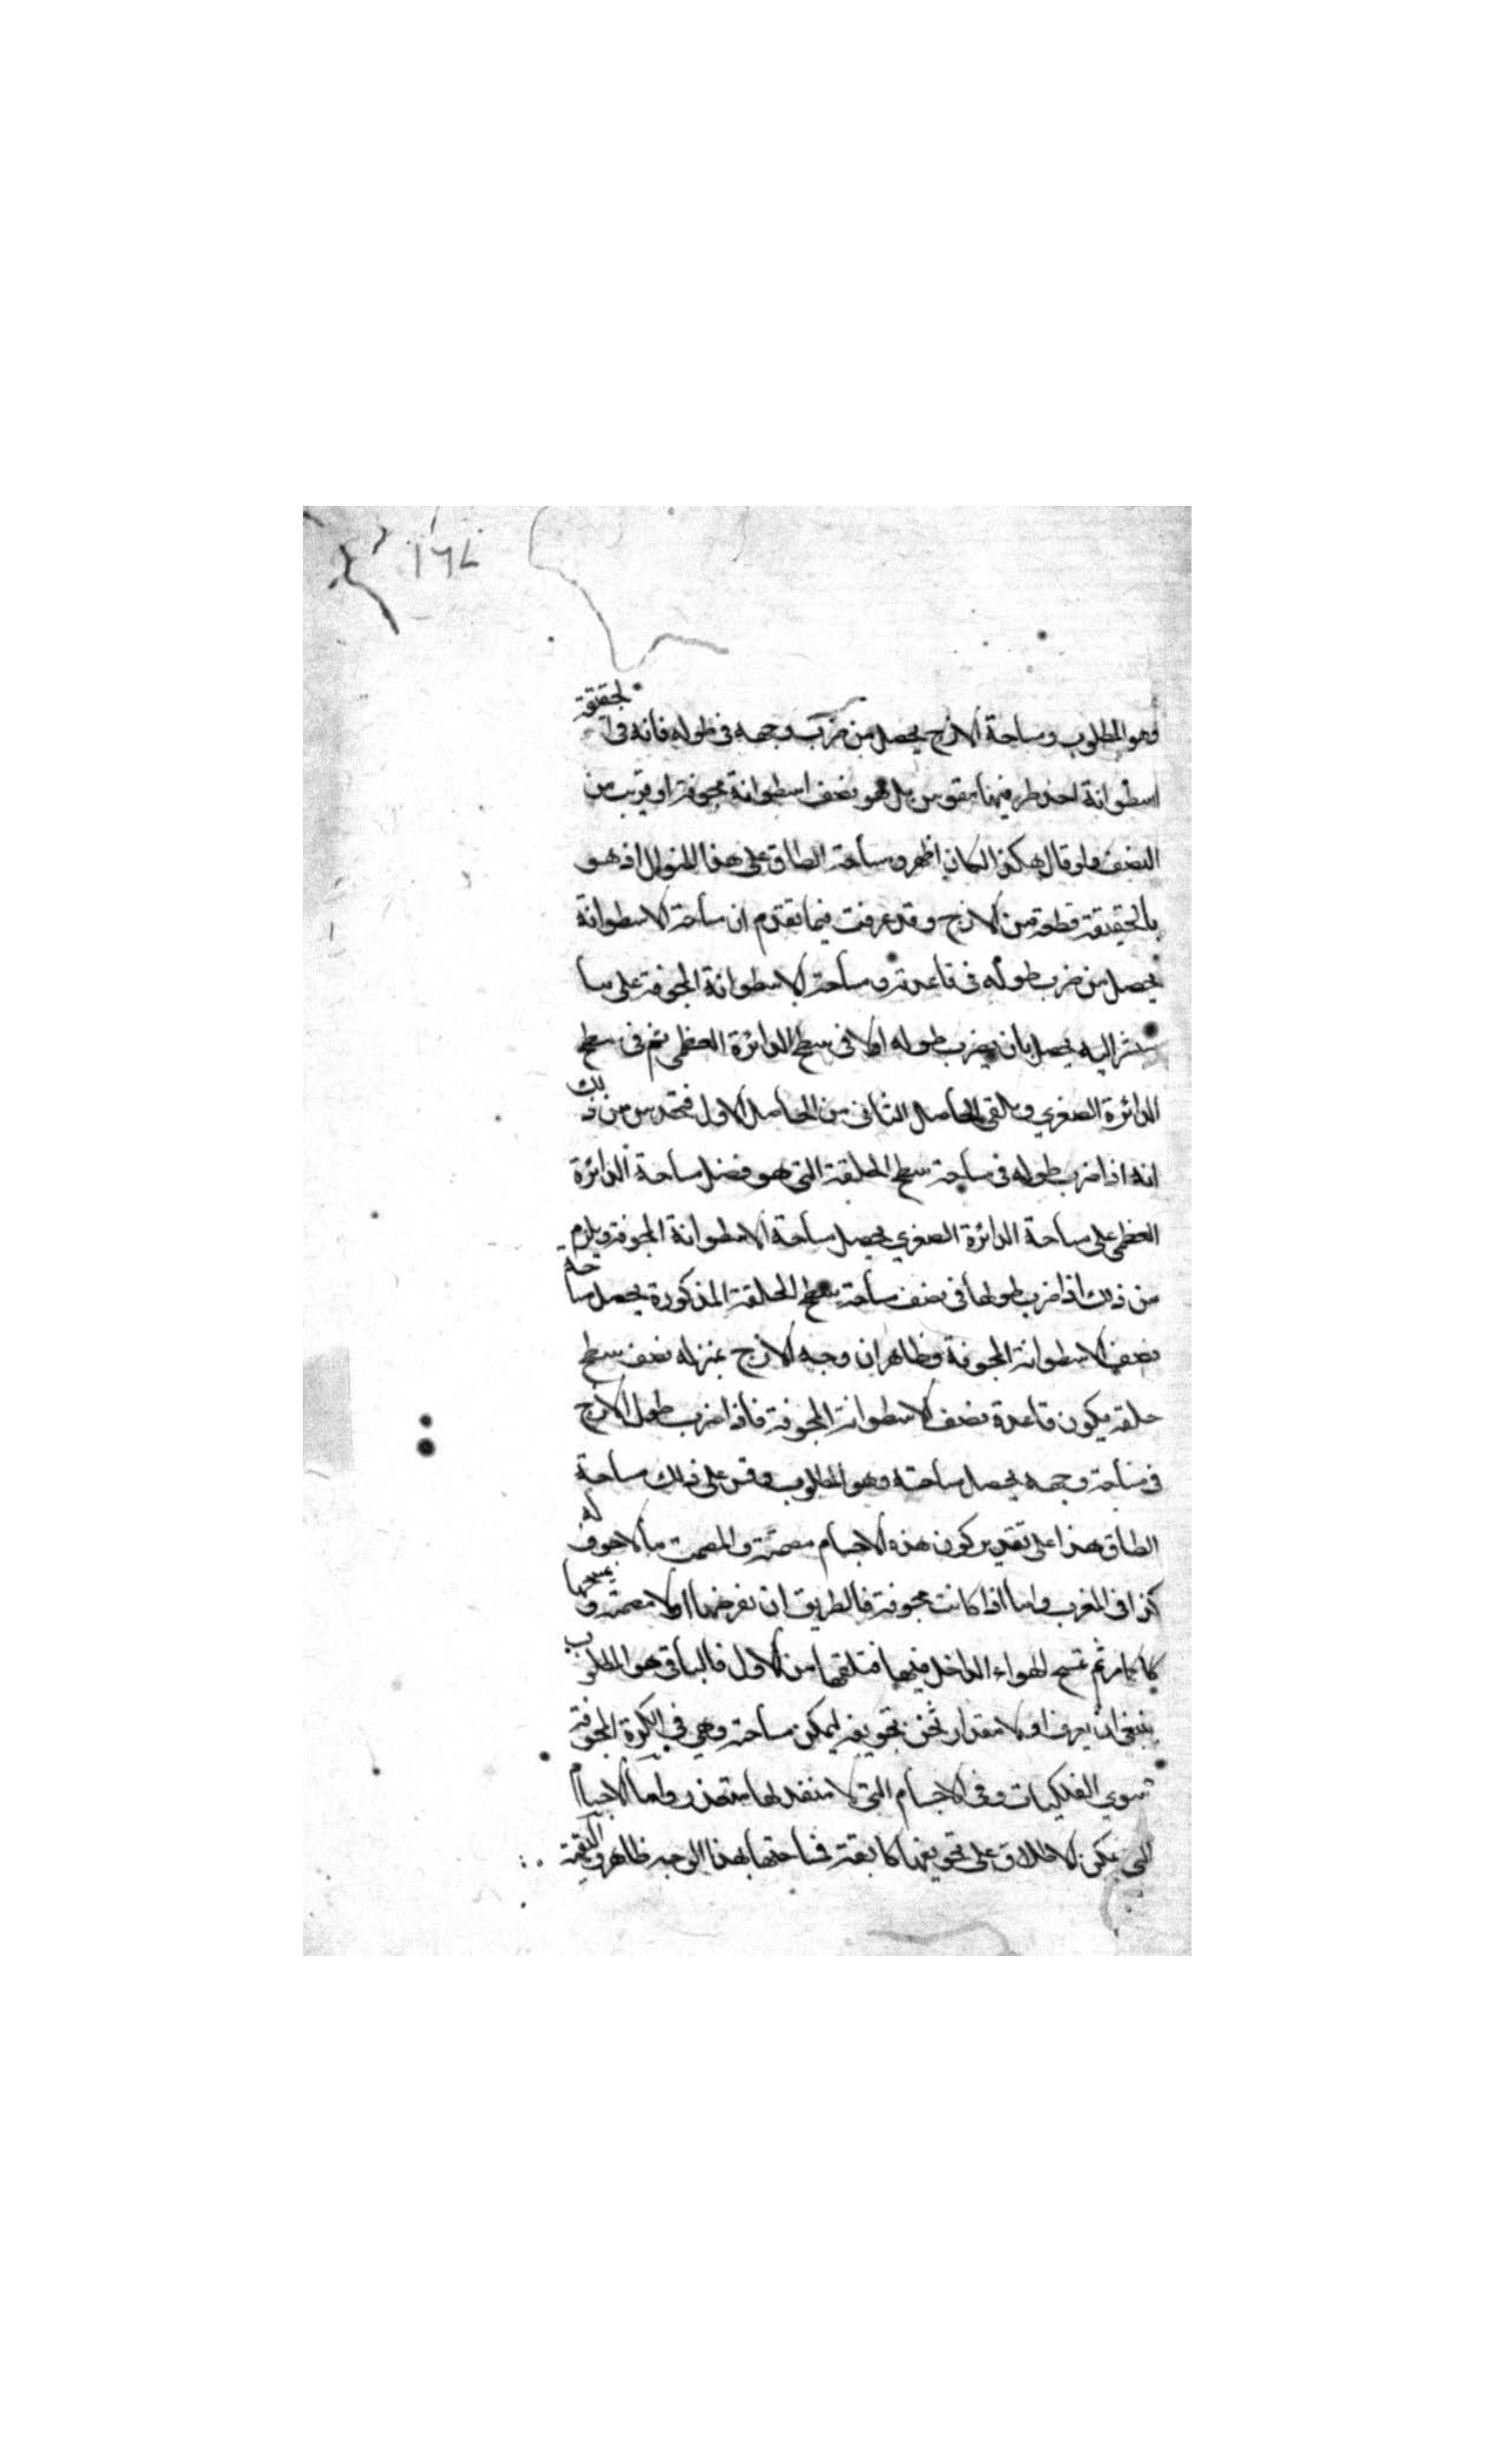 ١٦٧
وهو المطلوب ومساحة الازج يحصل من ضرب وجهه فى طوله فانه فى الحقيقة
اسطوانة احد طرفيها مقوس بل هو نصف اسطوانة مجوفة او قريب من
النصف ولو قال هكذا لكان اظهر ومساحة الطاق على هذا المنوال اذ هو
بالحقيقة قطعة من الازج وقد عرفت فيما تقدم ان مساحة الاسطوانة
يحصل من ضرب طوله فى قاعدته ومساحة الاسطوانة المجوفة على ما
نشير اليه يحصل بان يضرب طوله اولا فى سطح الدائرة العظمى ثم فى سطح
الدائرة الصغرى ويلقى الحاصل الثانى من الحاصل الاول فتحدس من ذلك
انه اذا ضرب طوله فى مساحة سطح الحلقة التى هو فضل مساحة الدائرة
العظمى على مساحة الدائرة الصغرى يحصل مساحة الاسطوانة المجوفة ويلزم
من ذلك اذا ضرب طولها فى نصف مساحة سطح الحلقة المذكورة يحصل مساحة
نصف الاسطوانة المجوفة وظاهر ان وجه الازج بمنزله نصف سطح
حلقة يكون قاعدة نصف الاسطوانة المجوفة فاذا ضرب طول الازج
فى مساحة وجهه يحصل مساحته وهو المطلوب وقس على ذلك مساحة
الطاق هذا على تقدير كون هذه الاجسام مصمتة والمصمت ما لا جوف له
كذا فى المغرب واما اذا كانت مجوفة فالطريق ان نفرضها اولا مصمتة ونمسحها
كما مر ثم نمسح الهواء الداخل فيها فتلقها من الاول فالباقى هو المطلوب
ينبغى ان يعرف اولا مقدار ثخن تجويفه ليمكن مساحته وهى فى الكرة المجوفة
سوى الفلكيات وفى الاجسام التى لا منفذ لها متعذر واما الاجسام
التى يمكن الاطلاع على تجويفها فمساحتها بهذا الوجه ظاهر